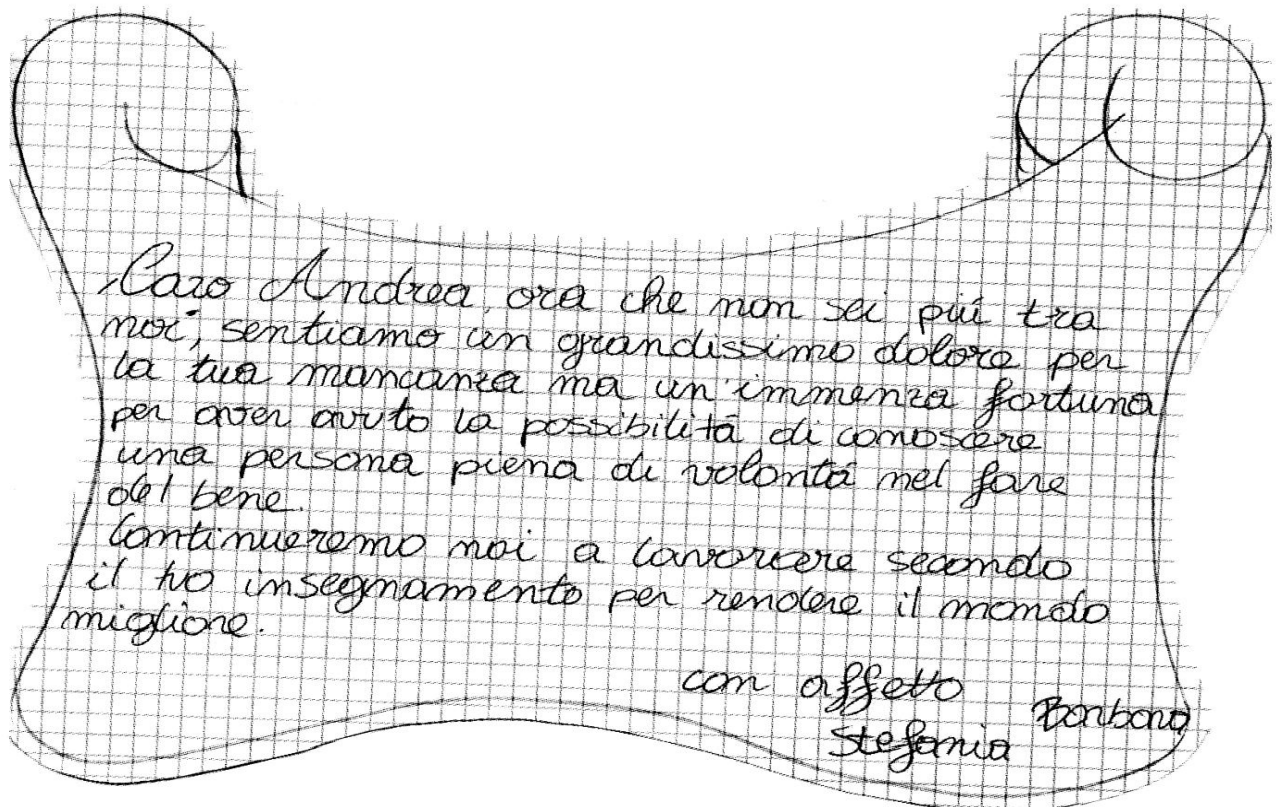 Caro Andrea, ora che non sei più tra
noi, sentiamo un grandissimo dolore per
la tua mancanza ma un'immenza fortuna
per aver avuto la possibilità di conoscere
una persona piena di volontà nel fare
del bene.
Continueremo noi a lavorare secondo
il tuo insegnamento per rendere il mondo
migliore.
con affetto
Stefania Barbara